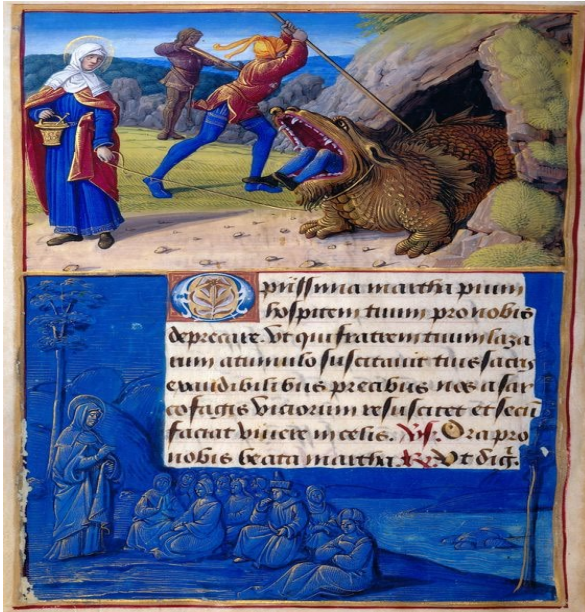 O piissima martha pium
hospitem tuum pro nobis
deprecare. Ut qui fratrem tuum laza
rum a tumulo suscitauit tuis sacris
exaudibilibus precibus nos a sar
cofagis viciorum resuscitet et secū
faciat viuere in celis. Vs. Ora pro
nobis beata martha. R. Ut dig.